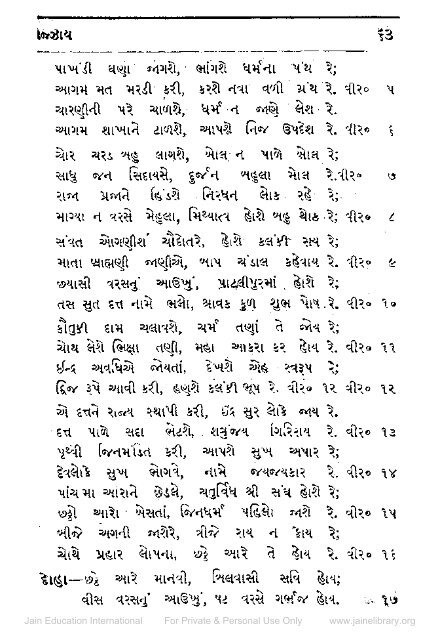 જ્ઝાય ૬૩
પાખંડી ઘણા જાગશે, ભાંગશે ધર્મના પંથ રે;
આગમ મત મરડી કરી, કરશે નવા વળી ગ્રંથ રે. વીર૦ ૫
ચારણીની પરે ચાળશે, ધર્મ ન જાણે લેશ રે.
આગમ શાખાને ટાળશે, આપશે નિજ ઉપદેશ રે. વીર૦ ૬
ચોર ચરડ બહુ લાગશે, બોલ ન પાળે બોલ રે;
સાધુ જન સિદાયસે, દુર્જન બહુલા મોલ રે.વીર૦ ૭
રાજા પ્રજાને હિંડશે નિરધન લોક રહે રે;
માગ્યા ન વરસે મેહુલા, મિથ્યાત્વ હોશે બહુ થોક રે; વીર૦ ૮
સંવત ઓગણીશ ચૌદોતરે, હોશે કલંકી રાય રે;
માતા બ્રાહ્મણી જાણીએ, બાપ ચંડાલ કહેવાય રે. વીર૦ ૯
છ્યાસી વરસનું આઉખું, પાટલીપુરમાં હોશે રે;
તસ સુત દત્ત નામે ભલો, શ્રાવક કુળ શુભ પોષ રે. વીર૦ ૧૦
કૌતુકી દામ ચલાવશે, ચર્મ તણાં તે જોય રે;
ચોથ લેશે ભિક્ષા તણી, મહા આકરા કર હોય રે. વીર૦ ૧૧
ઈન્દ્ર અવધિએ જોયતાં, દેખશે એહ સ્વરૂપ રે;
દ્વિજ રૂપે આવી કરી, હણશે કલંકી ભૂપ રે. વીર૦ ૧૨ વીર૦ ૧૨
એ દત્તને રાજ્ય સ્થાપી કરી, ઈંદ્ર સુર લોકે જાય રે.
દત્ત પાળે સદા ભેટશે, શત્રુંજય ગિરિરાય રે. વીર૦ ૧૩
પૃથ્વી જિનમંડિત કરી, આપશે સુખ અપાર રે;
દેવલોકે સુખ ભોગવે, નામે જયજયકાર રે. વીર૦ ૧૪
પાંચમા આરાને છેડલે, ચતુર્વિધ શ્રી સંઘ હોશે રે;
છઠ્ઠો આરો બેસતાં, જિનધર્મ પહિલો જાશે રે. વીર૦ ૧૫
બીજે અગની જાશેરે, ત્રીજે રાય ન કોય રે;
ચોથે પ્રહાર લોપના, છઠ્ઠે આરે તે હોય રે. વીર૦ ૧૬
દોહા—છઠ્ઠે આરે માનવી, બિલવાસી સવિ હોય;
વીસ વરસનું આઉખું, ષટ વરસે ગર્ભજ હોય. ૧૭
Jain Education International For Private & Personal Use Only www.jainelibrary.org